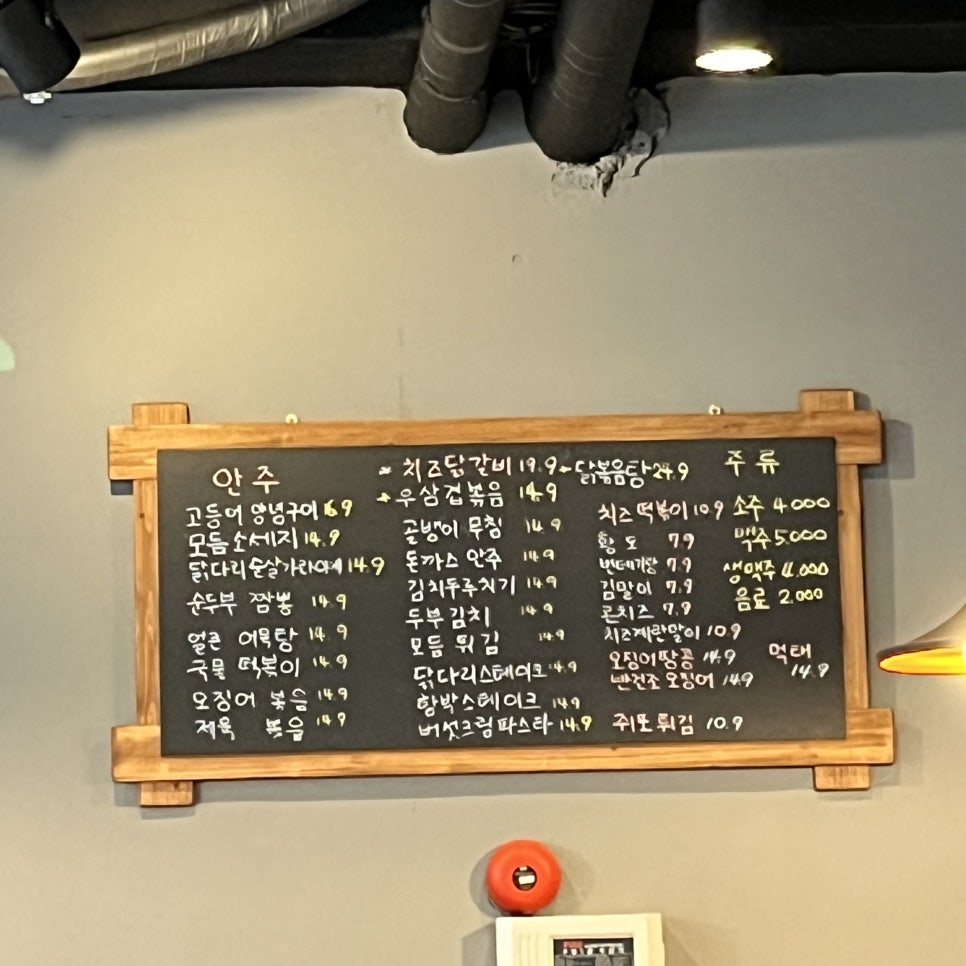 안주
고등어 양념구이 16.9
모듬소세지 14.9
닭다리순살가라아게 14.9
순두부 짬뽕 14.9
얼큰 어묵탕 14.9
국물 떡볶이 14.9
오징어 볶음 14.9
제육 볶음 14.9
치즈닭갈비 19.9
우삼겹볶음 14.9
골뱅이 무침 14.9
돈까스 안주 14.9
김치두루치기 14.9
두부김치 14.9
모듬 튀김 14.9
닭다리스테이크 14.9
함박스테이크 14.9
버섯크림파스타 14.9
닭볶음탕 24.9
치즈떡볶이 10.9
황도 7.9
번데기탕 7.9
김말이 7.9
콘치즈 7.9
치즈계란말이 10.9
오징어땅콩 14.9
반건조 오징어 14.9
쥐포튀김 10.9
주류
소주 4.000
맥주 5.000
생맥주 4.000
음료 2.000
먹태
14.9
FIRE